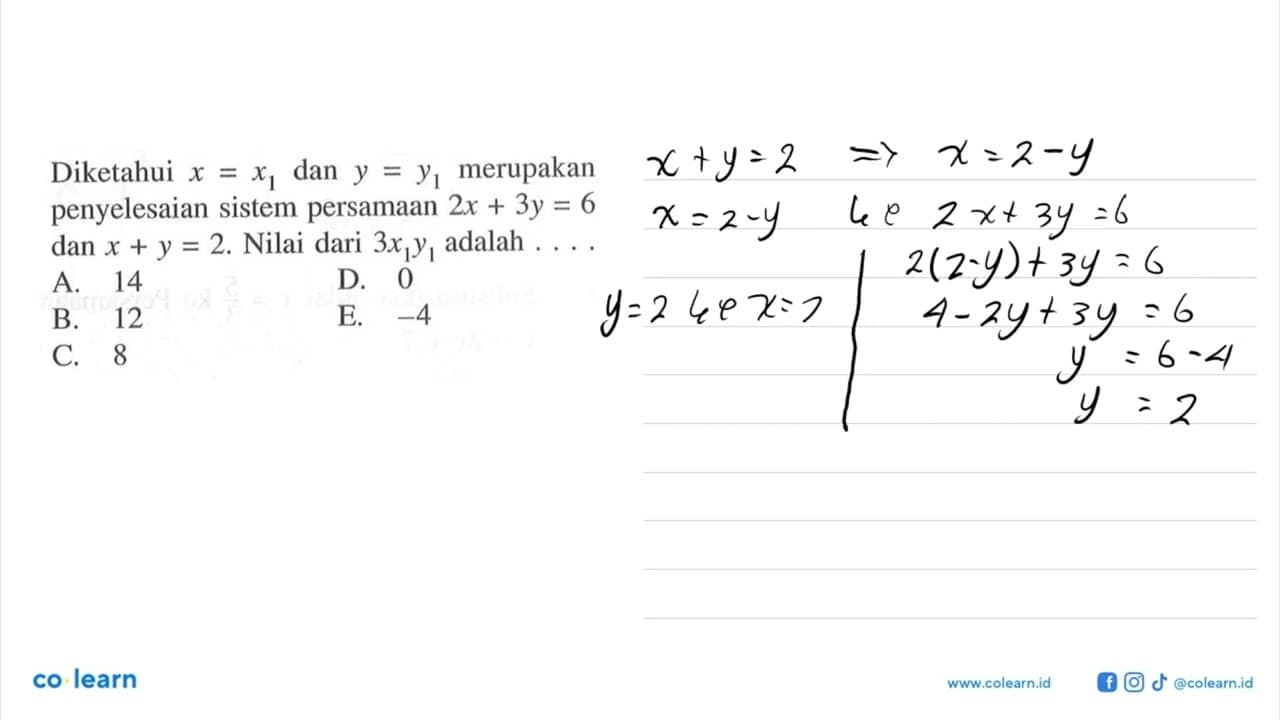 Diketahui x = x₁ dan y = y₁ merupakan
penyelesaian sistem persamaan 2x + 3y = 6
dan x + y = 2. Nilai dari 3x₁y₁ adalah . . . .
A. 14 D. 0
B. 12 E. –4
C. 8
x + y = 2 => x = 2 - y
x = 2 - y ke 2x + 3y = 6
2(2-y) + 3y = 6
y = 2 ke x = 2
4 - 2y + 3y = 6
y = 6 - 4
y = 2
co learn
www.colearn.id
@colearn.id